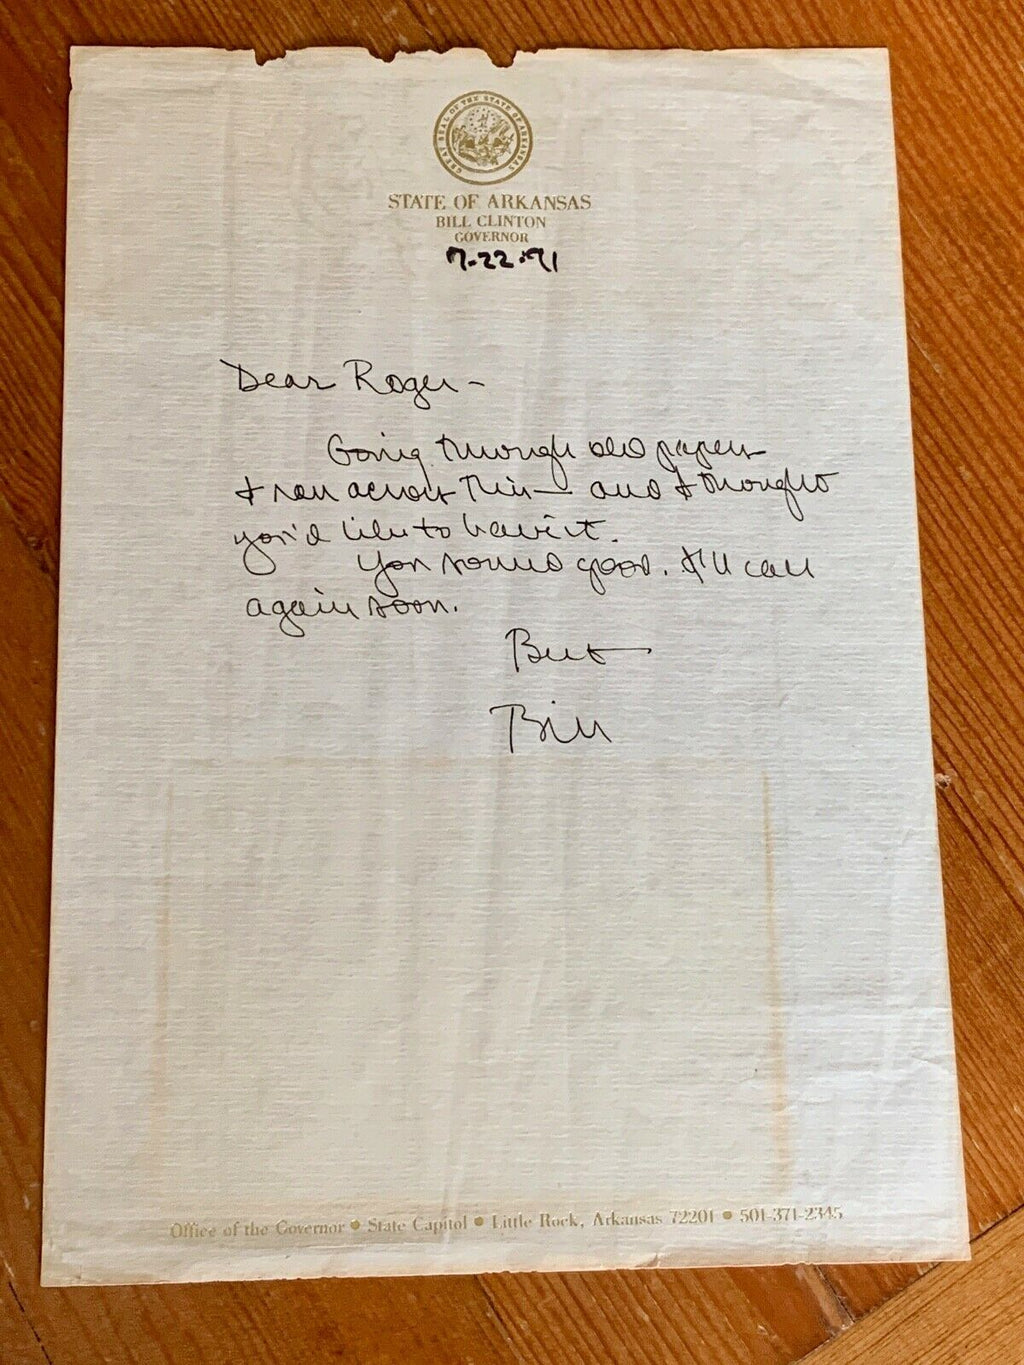 GREAT SEAL OF THE STATE OF ARKANSAS
STATE OF ARKANSAS
BILL CLINTON
GOVERNOR
7-22-91
Dear Roger -
Going through old papers
I ran across this — and I thought
you'd like to have it.
You sound good. I'll call
again soon.
Best
Bill
Office of the Governor • State Capitol • Little Rock, Arkansas 72201 • 501-371-2345